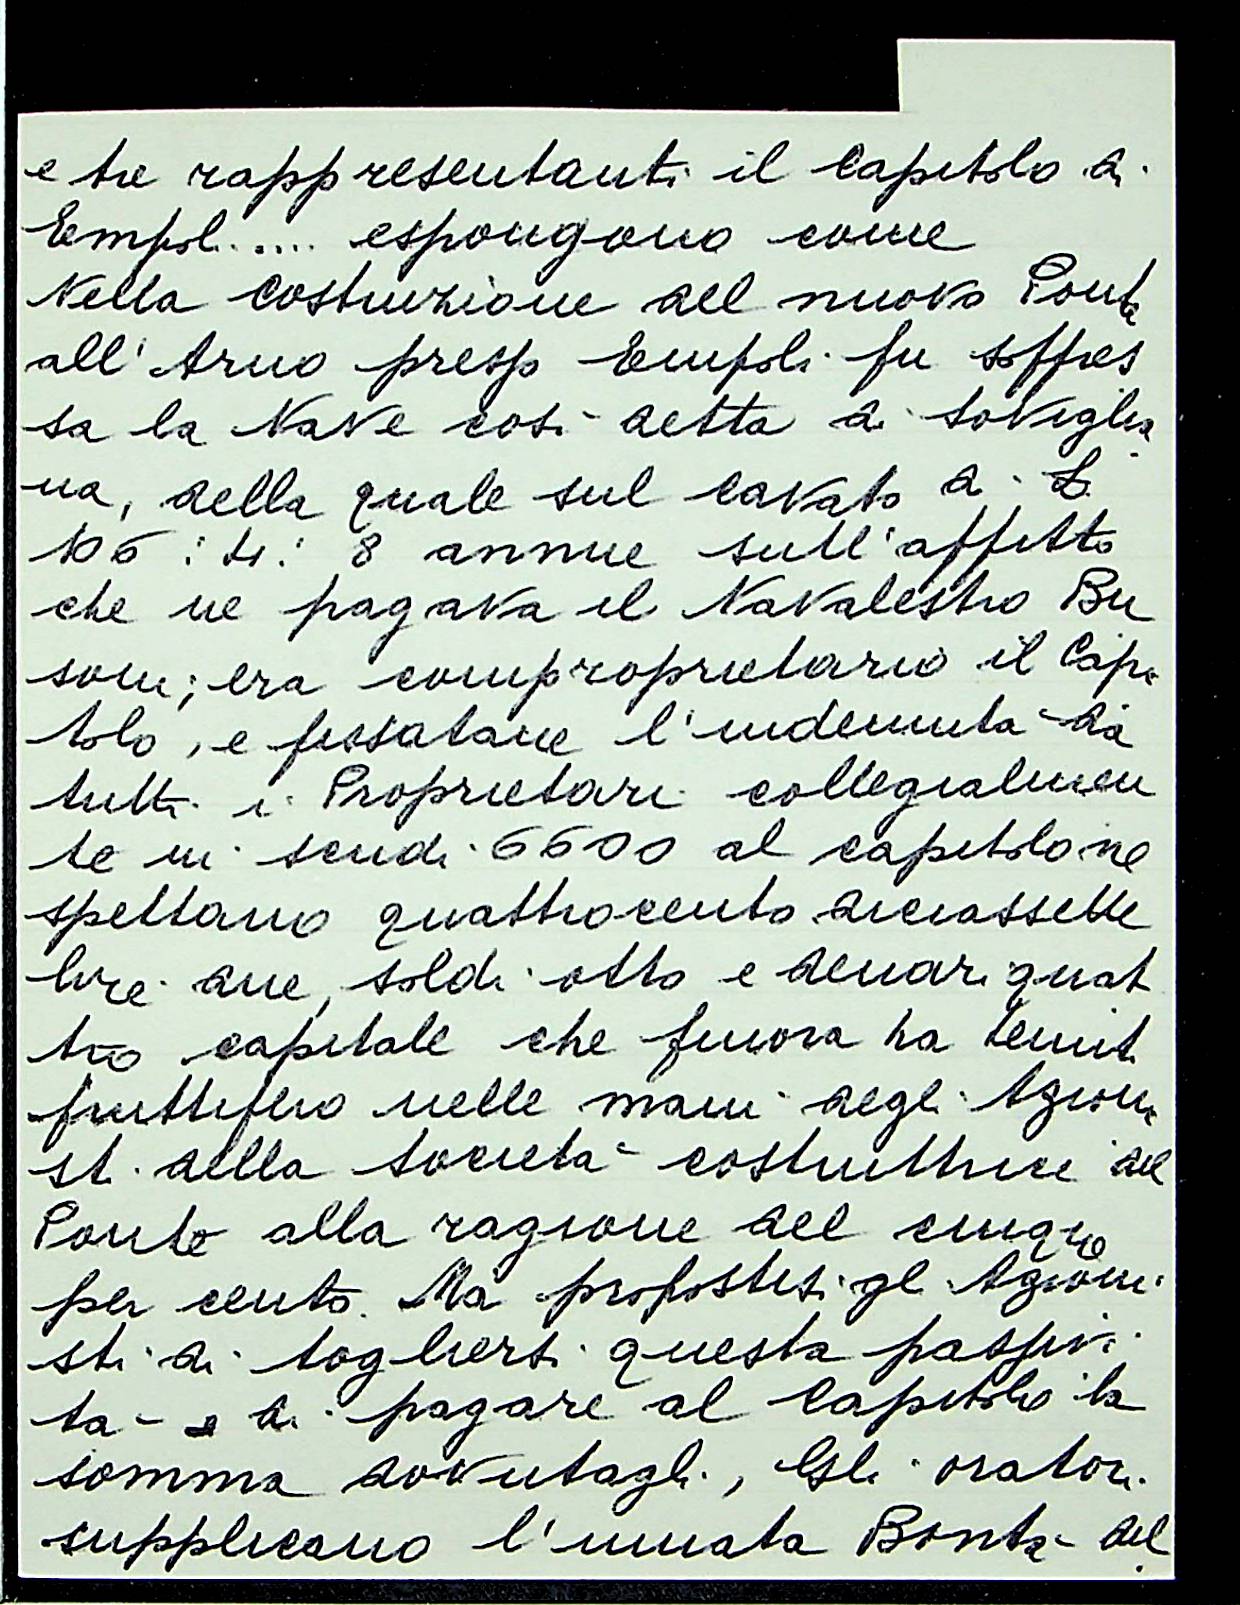 e tre rappresentanti il Capitolo di
Empol..... espongono come
Nella Costruzione del nuovo Ponte
all'Arno presso Empoli fu soppres
sa la Nave così detta di Soviglia
na, della quale sul cavato di £
106 : 4 : 8 annue sull'affitto
che ne pagava il Navalestro Bu
soni; era comproprietario il Capi
tolo, e fissatane l'indennità da
tutti i Proprietari collegialmen
te in scudi 6600 al capitolo ne
spettano quattrocento diciassette
lire due, soldi otto e denari quat
tro capitale che finora ha tenut
fruttifero nelle mani degli Azioni
sti della Società costruttrice del
Ponte alla ragione del cinque
per cento. Ma propostisi gl Azioni
sti di togliersi questa passivi
tà e di pagare al Capitolo la
somma dovutagli, Gli oratori
supplicano l'innata Bontà del